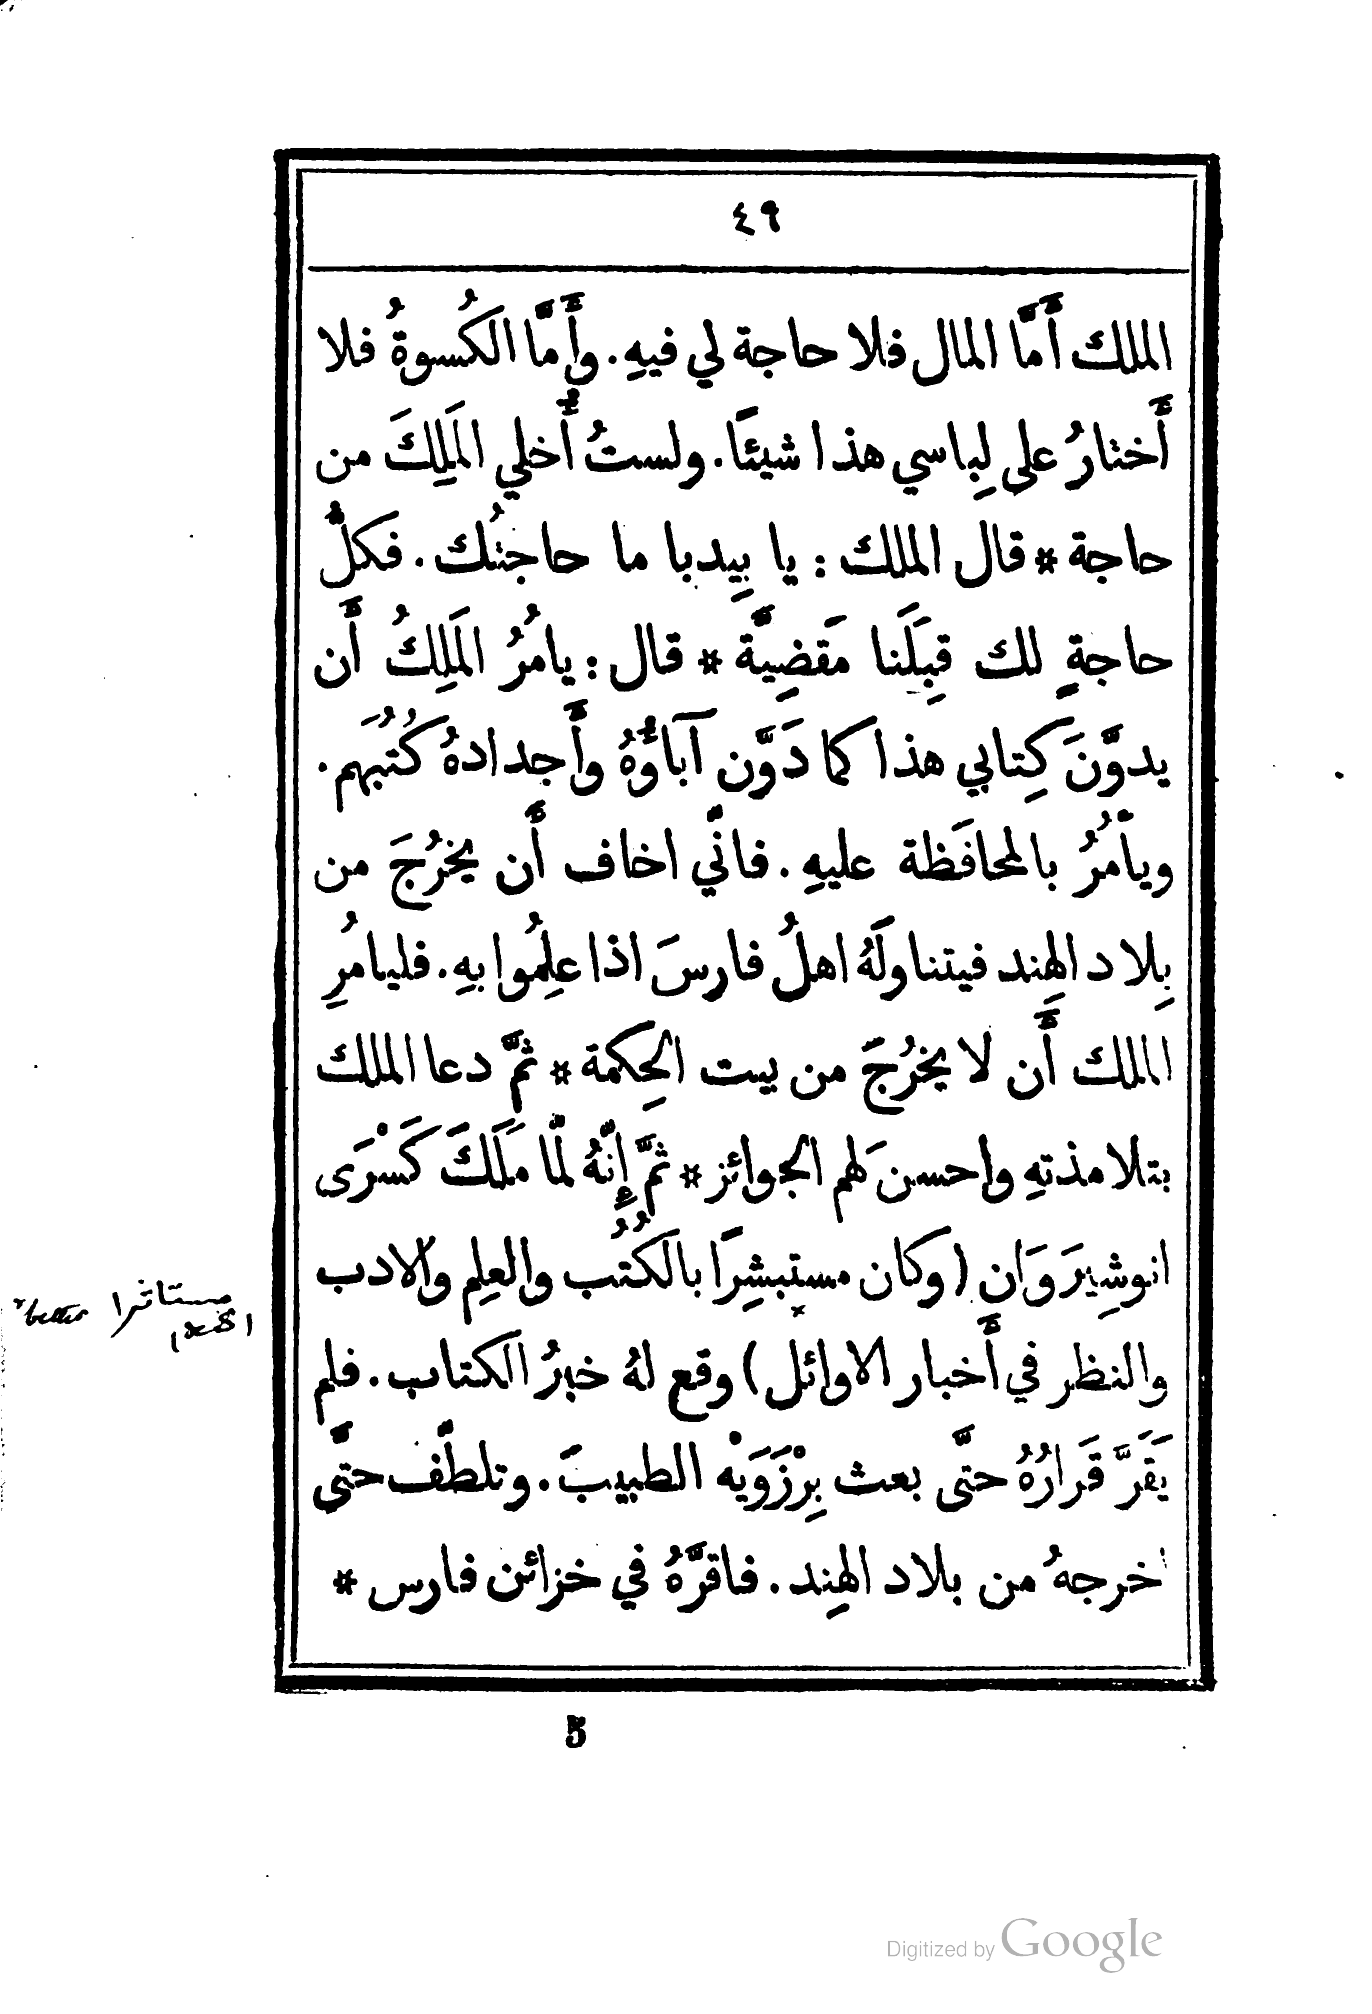 ٤٩
الملك أَمَّا المال فلا حاجة لي فيهِ. وأَمَّا الكُسوةُ فلا
أَختارُ على لِباسي هذا شيئًا. ولستُ أُخلي المَلِكَ من
حاجة * قال الملك : يا بِيدبا ما حاجتُك. فكلُّ
حاجةٍ لك قِبَلَنا مَقضِيَّة * قال : يامُرُ المَلِكُ أَن
يدوَّنَ كِتابي هذا كما دَوَّن آباؤُهُ وأَجدادهُ كُتُبَهم.
ويأمُرُ بالمحافَظة عليهِ. فانّي اخاف أَن يخرُجَ من
بِلاد الهند فيتناولَهُ اهلُ فارسَ اذا علِمُوا بِهِ. فليامرِ
الملك أَن لا يخرُجَ من بيت الحِكمة * ثمَّ دعا الملك
بتلامذتهِ واحسن لَهم الجوائز * ثمَّ إِنَّهُ لمّا مَلَكَ كَسْرَى
انوشِيرَوَان (وكان مستبشِرًا بالكُتُب والعِلم والادب
والنظر في أَخبار الاوائل) وقع لهُ خبرُ الكتاب. فلم
يَقَرَّ قَرارُهُ حتَّى بعث بِرْزَوَيْه الطبيبَ. وتلطَّف حتَّى
اخرجهُ من بلاد الهِند. فاقرَّهُ في خزائن فارس *
5
better
Digitized by Google